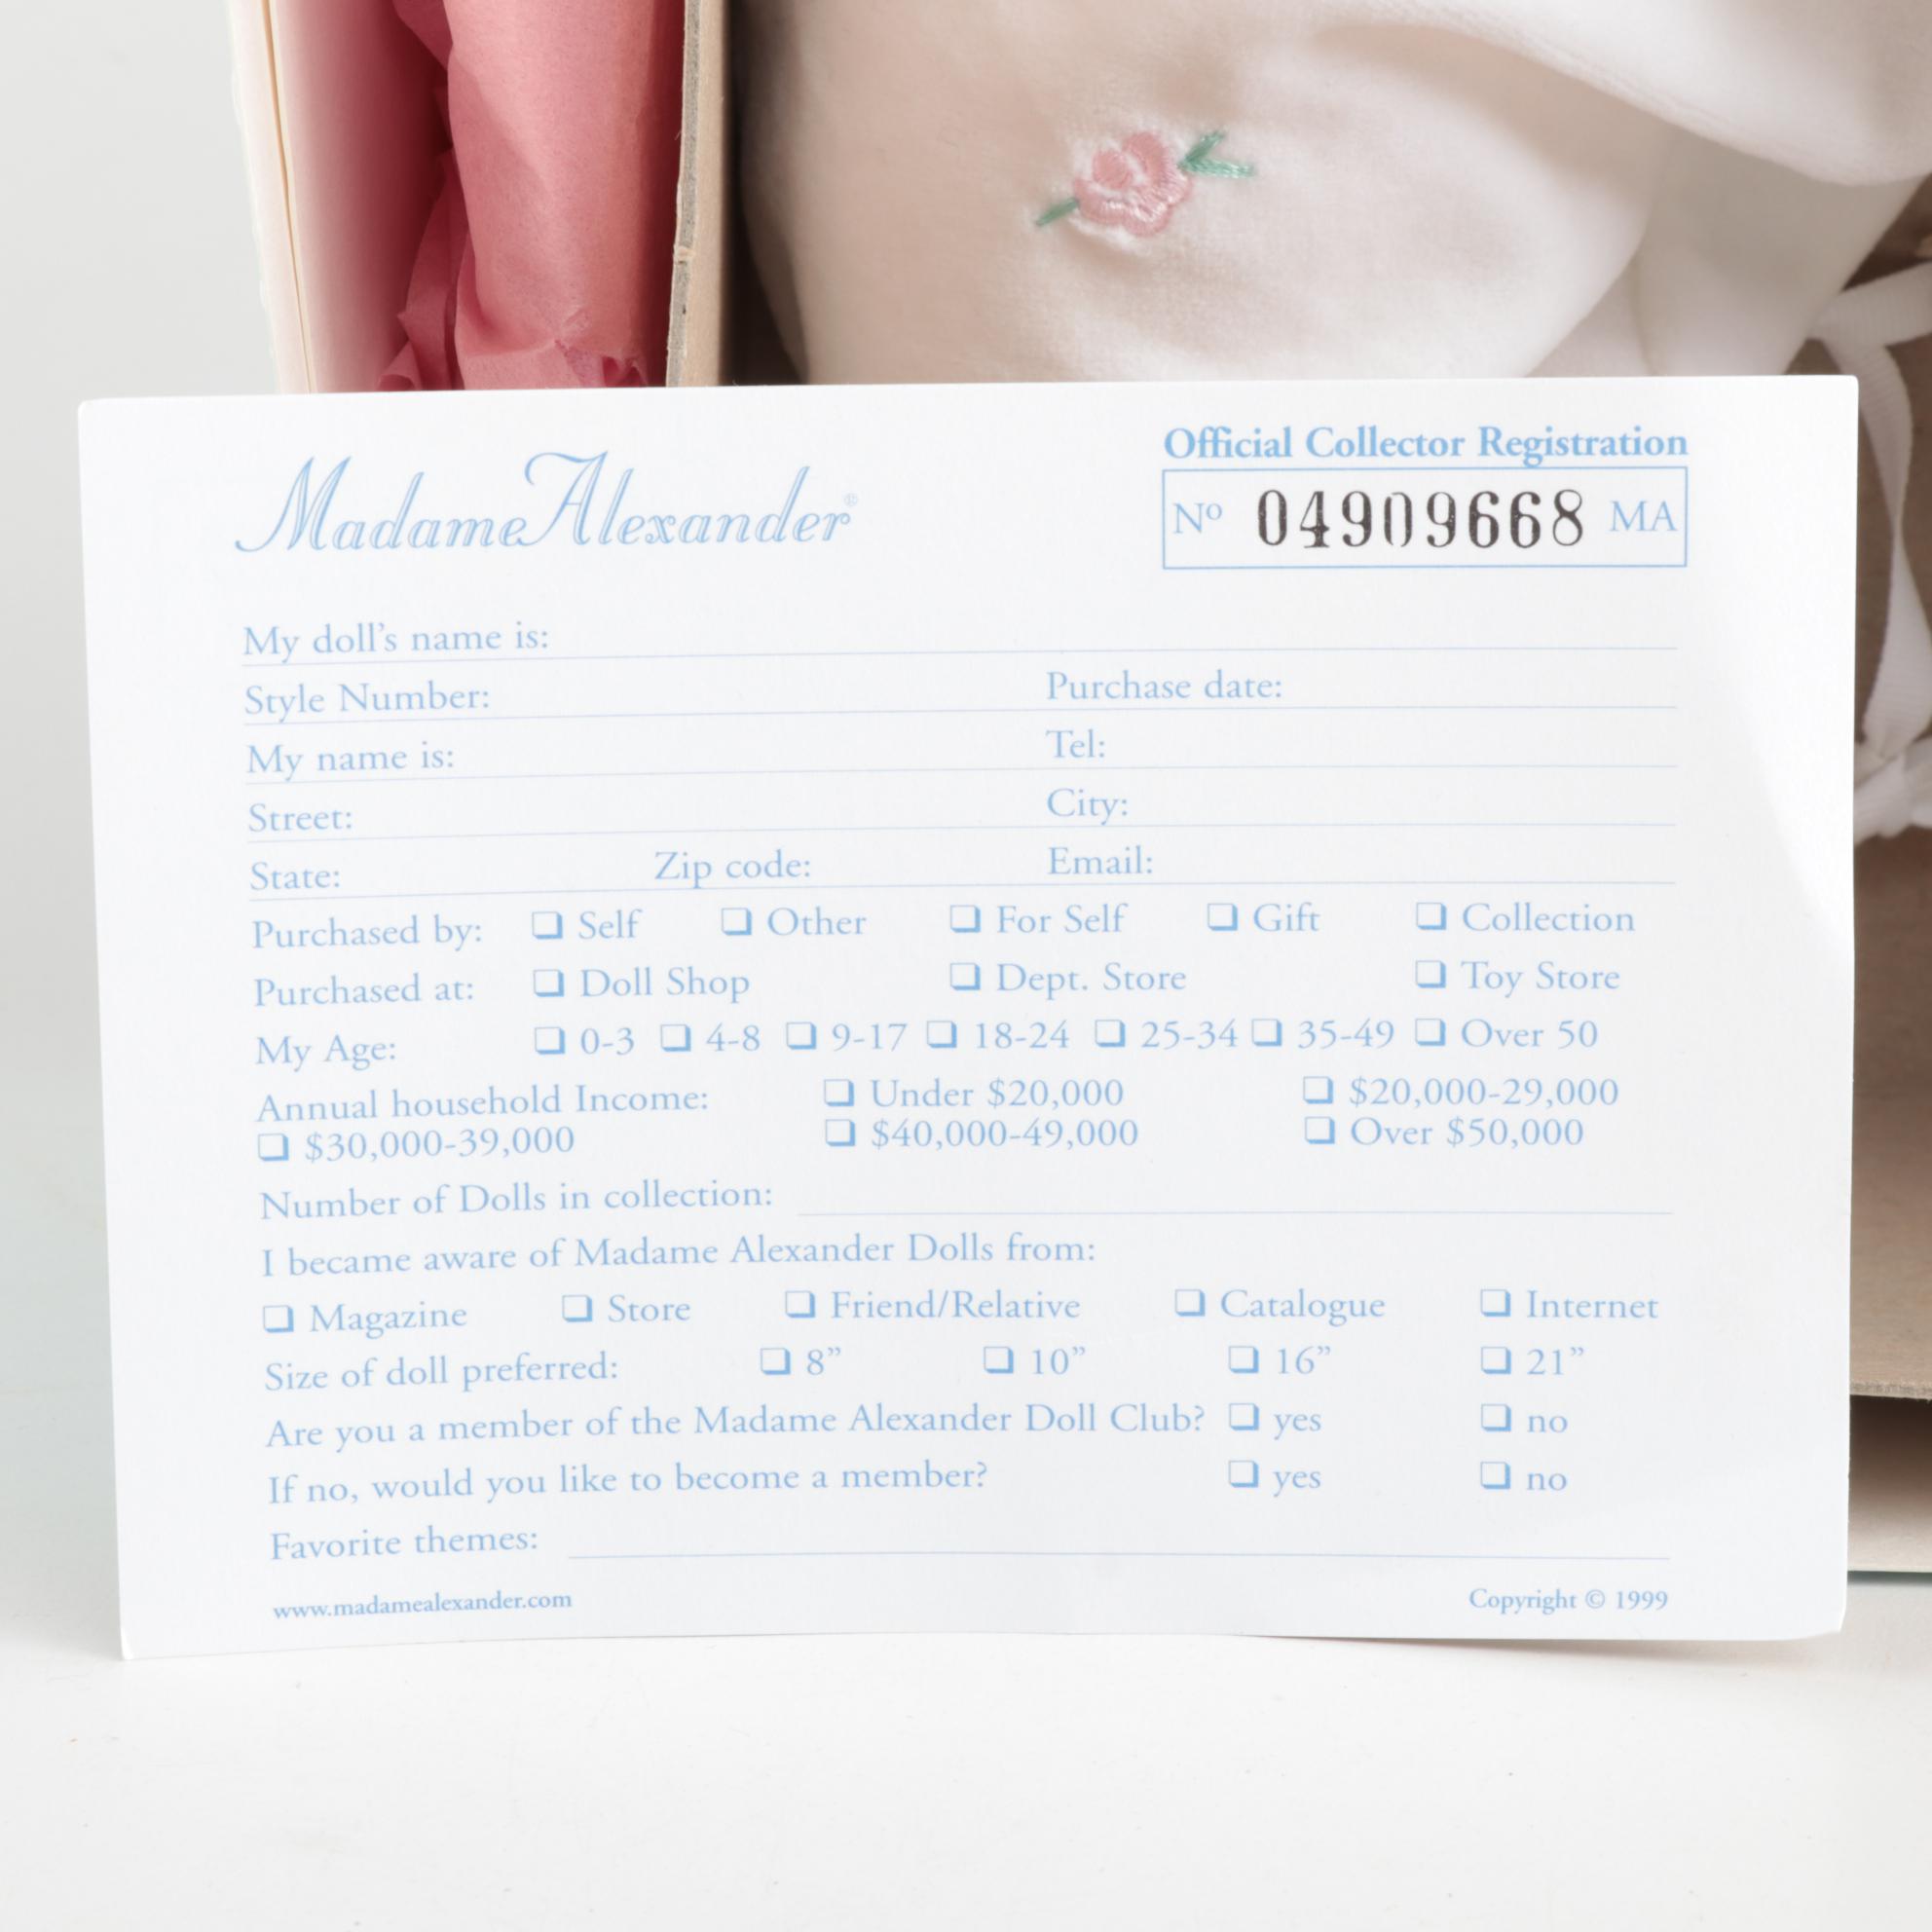 Madame Alexander®
Official Collector Registration
Nº 04909668 MA
My doll's name is:
Style Number: Purchase date:
My name is: Tel:
Street: City:
State: Zip code: Email:
Purchased by: ❏ Self ❏ Other ❏ For Self ❏ Gift ❏ Collection
Purchased at: ❏ Doll Shop ❏ Dept. Store ❏ Toy Store
My Age: ❏ 0-3 ❏ 4-8 ❏ 9-17 ❏ 18-24 ❏ 25-34 ❏ 35-49 ❏ Over 50
Annual household Income: ❏ Under $20,000 ❏ $20,000-29,000
❏ $30,000-39,000 ❏ $40,000-49,000 ❏ Over $50,000
Number of Dolls in collection:
I became aware of Madame Alexander Dolls from:
❏ Magazine ❏ Store ❏ Friend/Relative ❏ Catalogue ❏ Internet
Size of doll preferred: ❏ 8” ❏ 10” ❏ 16” ❏ 21”
Are you a member of the Madame Alexander Doll Club? ❏ yes ❏ no
If no, would you like to become a member? ❏ yes ❏ no
Favorite themes:
www.madamealexander.com Copyright © 1999